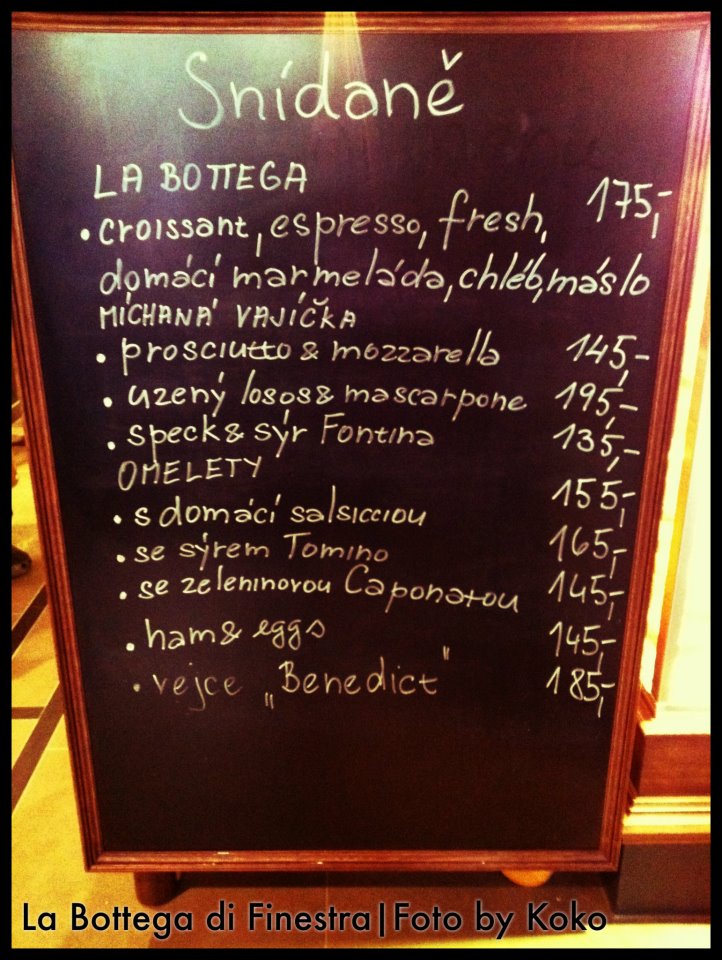 Snídaně
LA BOTTEGA
• croissant, espresso, fresh, 175,-
domácí marmeláda, chléb, máslo
MÍCHANÁ VAJÍČKA
• prosciutto & mozzarella 145,-
• uzený losos & mascarpone 195,-
• speck & sýr Fontina 135,-
OMELETY
• s domácí salsicciou 155,-
• se sýrem Tomino 165,-
• se zeleninovou Caponatou 145,-
• ham & eggs 145,-
• vejce „Benedict" 185,-
La Bottega di Finestra|Foto by Koko